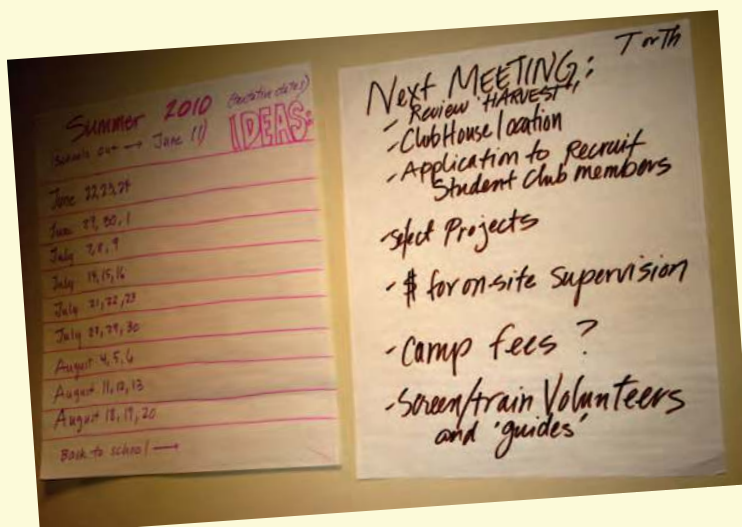 Summer 2010 (tentative dates)
IDEAS:
(schools out → June 11)
June 22,23,24
June 29,30,1
July 7,8,9
July 14,15,16
July 21,22,23
July 28,29,30
August 4,5,6
August 11,12,13
August 18,19,20
Back to school →
T or Th
Next MEETING:
- Review "HARVEST"
- ClubHouse location
- Application to Recruit
Student Club members
- select Projects
- $ for on-site Supervision
- Camp fees?
- Screen/train Volunteers
and 'guides'